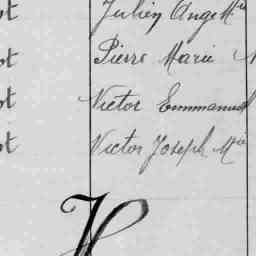 ot Julien Ange Mie
ot Pierre Marie
ot Victor Emmanuel
ot Victor Joseph Mie
H